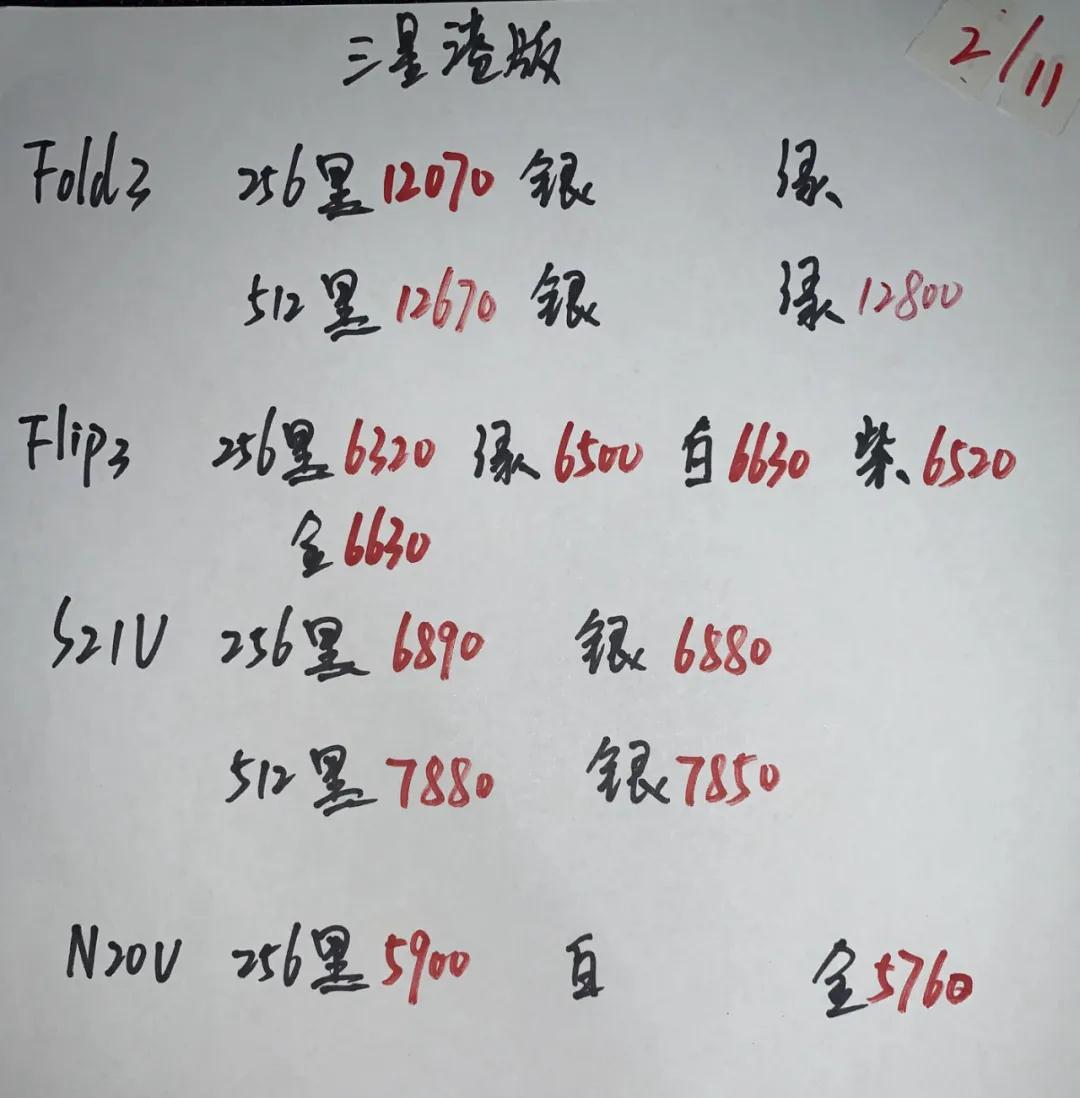 三星港版
2/11
Fold3 256黑12070 银 绿
512黑12670 银 绿12800
Flip3 256黑6320 绿6500 白6630 紫6520
金6630
S21U 256黑6890 银6880
512黑7880 银7850
N20U 256黑5900 白 金5760